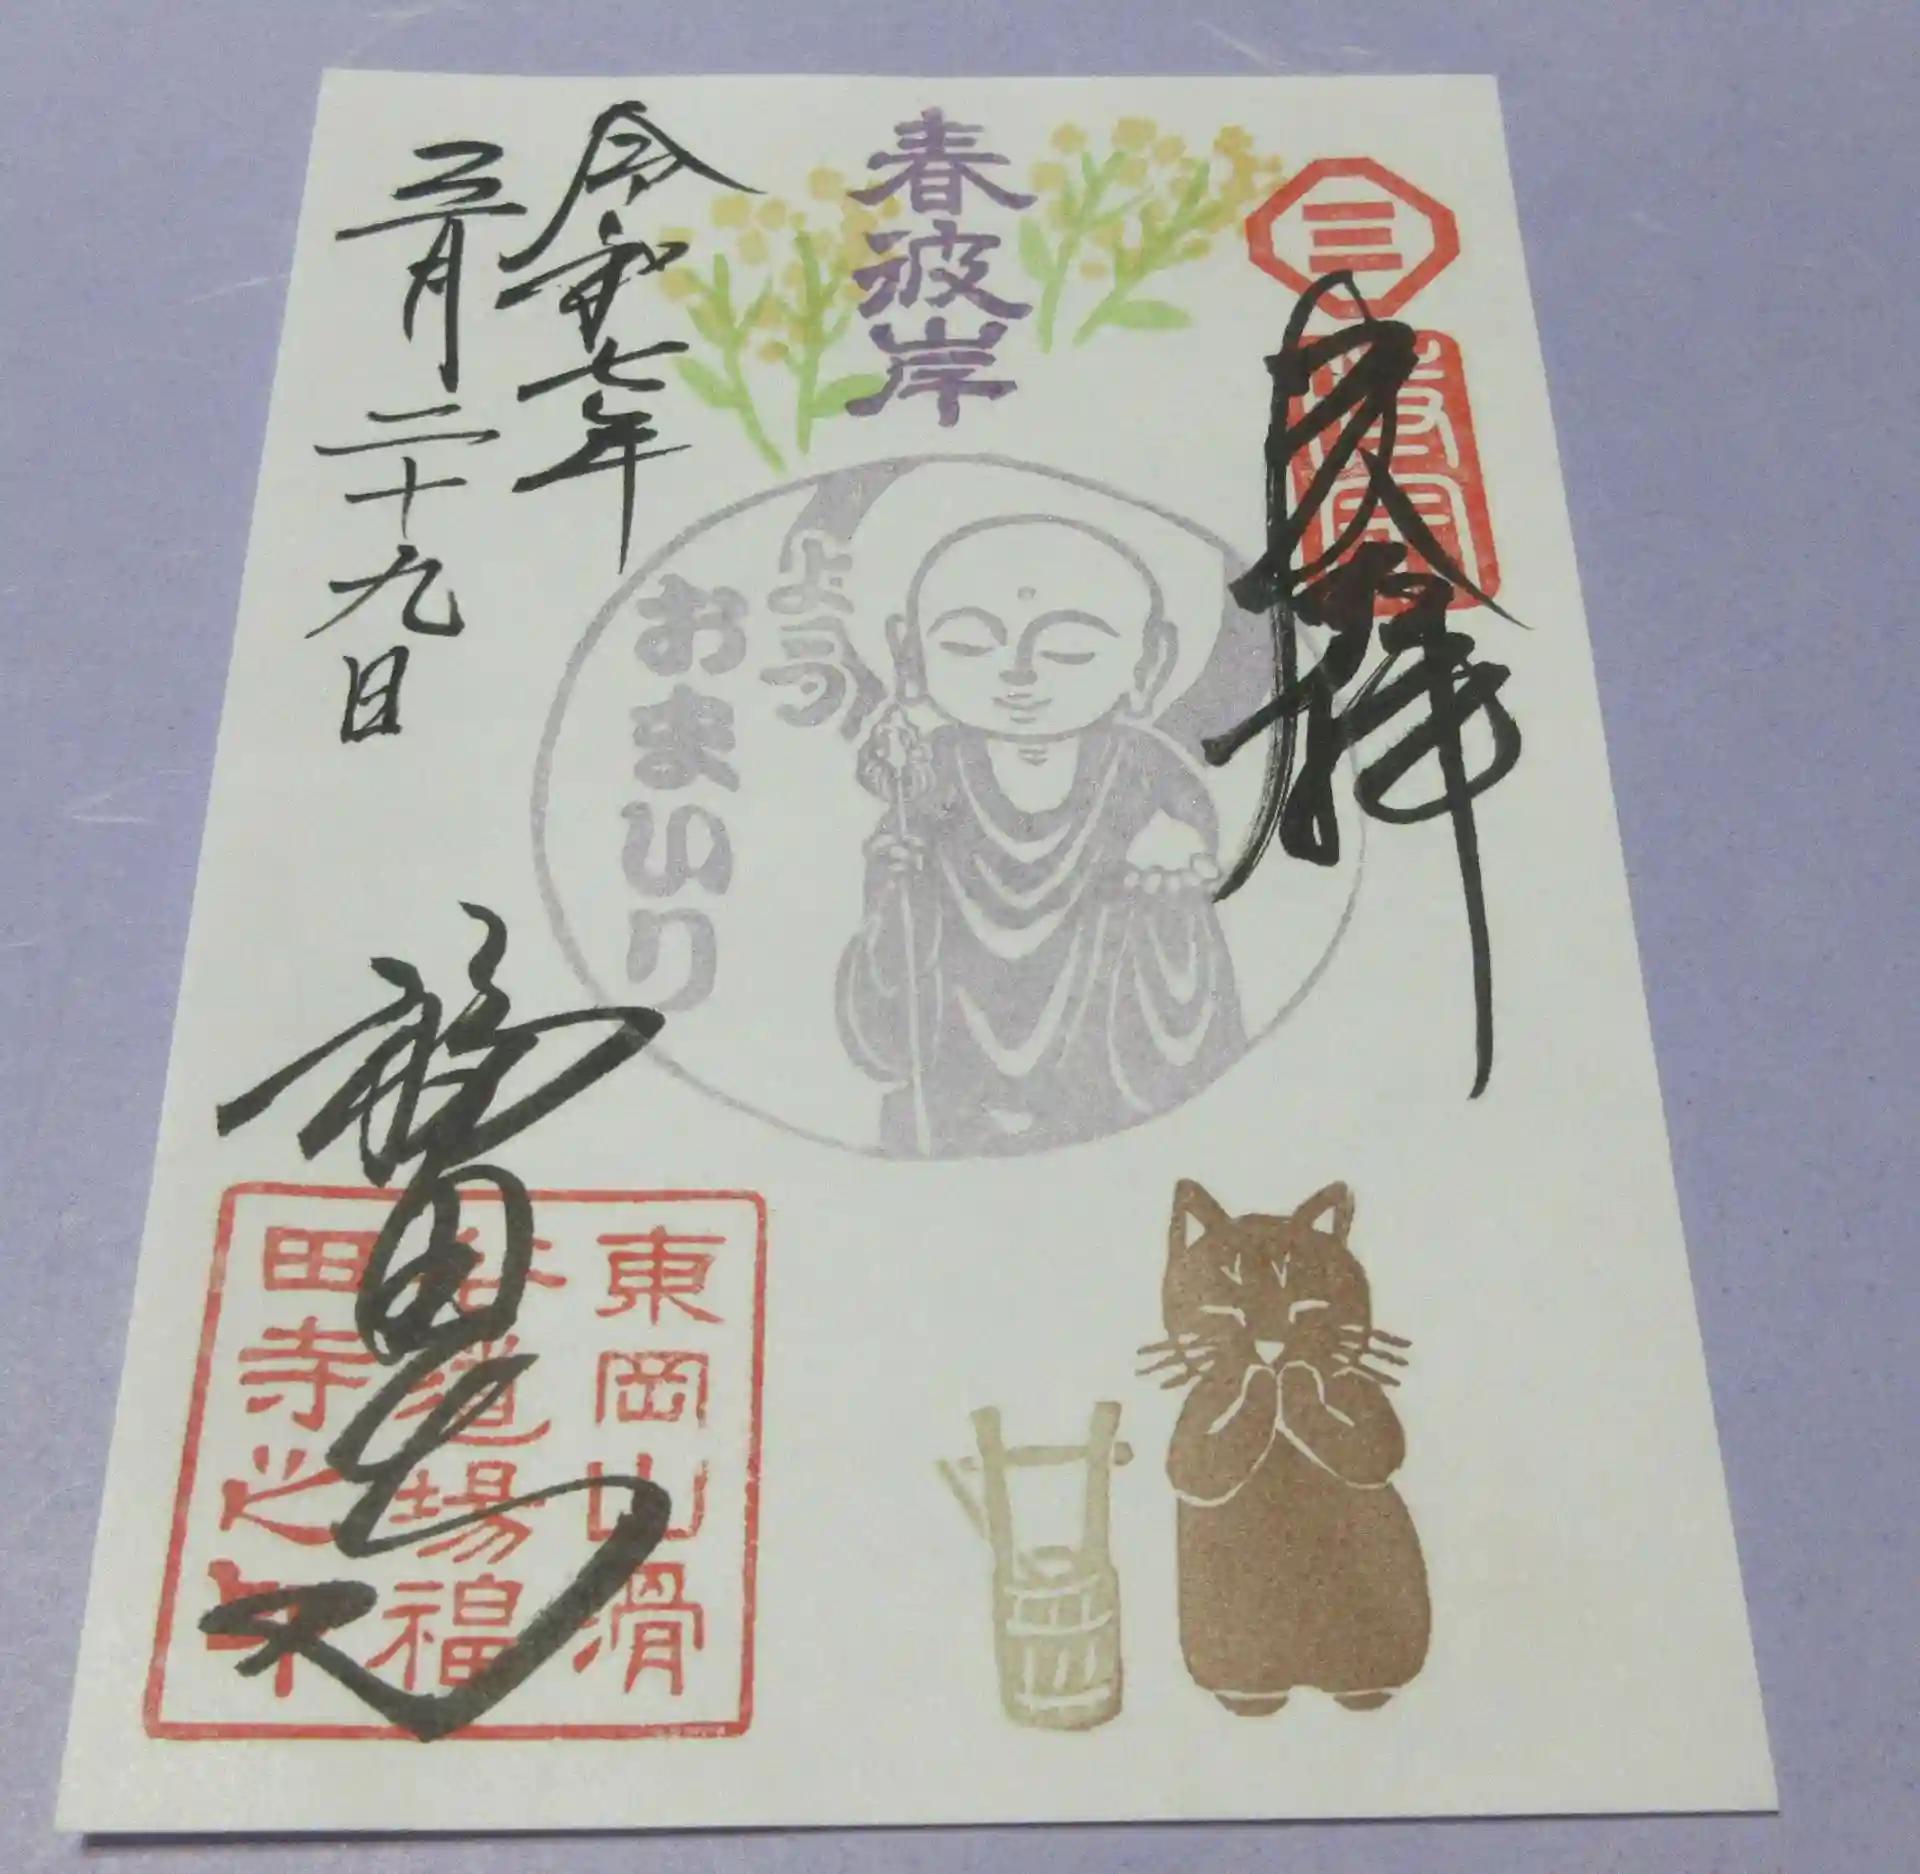 奉拝
春彼岸
ようおまいり
令和七年
三月二十九日
東岡山滑
谷道場福
田寺之印